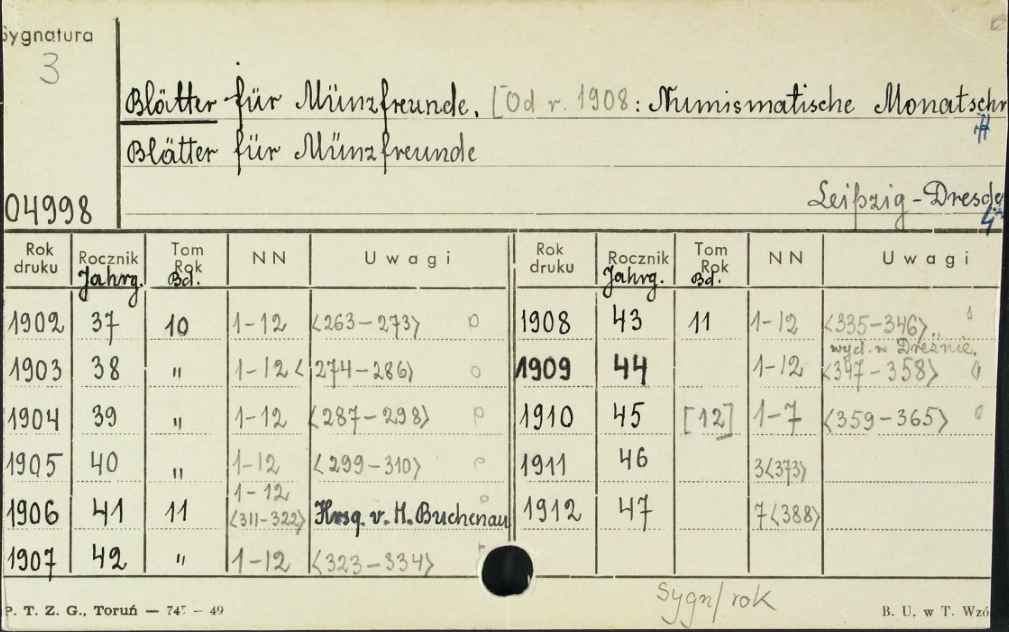 Sygnatura
3
Blätter für Münzfreunde. [Od r. 1908: Numismatische Monatschr
Blätter für Münzfreunde
Leipzig-Dresde
04998
Rok druku Rocznik Jahrg. Tom Rok Bd. NN Uwagi Rok druku Rocznik Jahrg. Tom Rok Bd. NN Uwagi
1902 37 10 1-12 <263-273> 0 1908 43 11 1-12 <335-346>
wyd. w Dreźnie.
1903 38 " 1-12 <274-286> 0 1909 44 1-12 <347-358> 0
1904 39 " 1-12 <287-298> 1910 45 [12] 1-7 <359-365> 0
1905 40 " 1-12 <299-310> 1911 46 3<373>
1906 41 11 1-12 <311-322> Hrsg. v. H. Buchenau 1912 47 7<388>
1907 42 " 1-12 <323-334>
Sygn/rok
P. T. Z. G., Toruń — 74 — 49 B. U. w T. Wzó